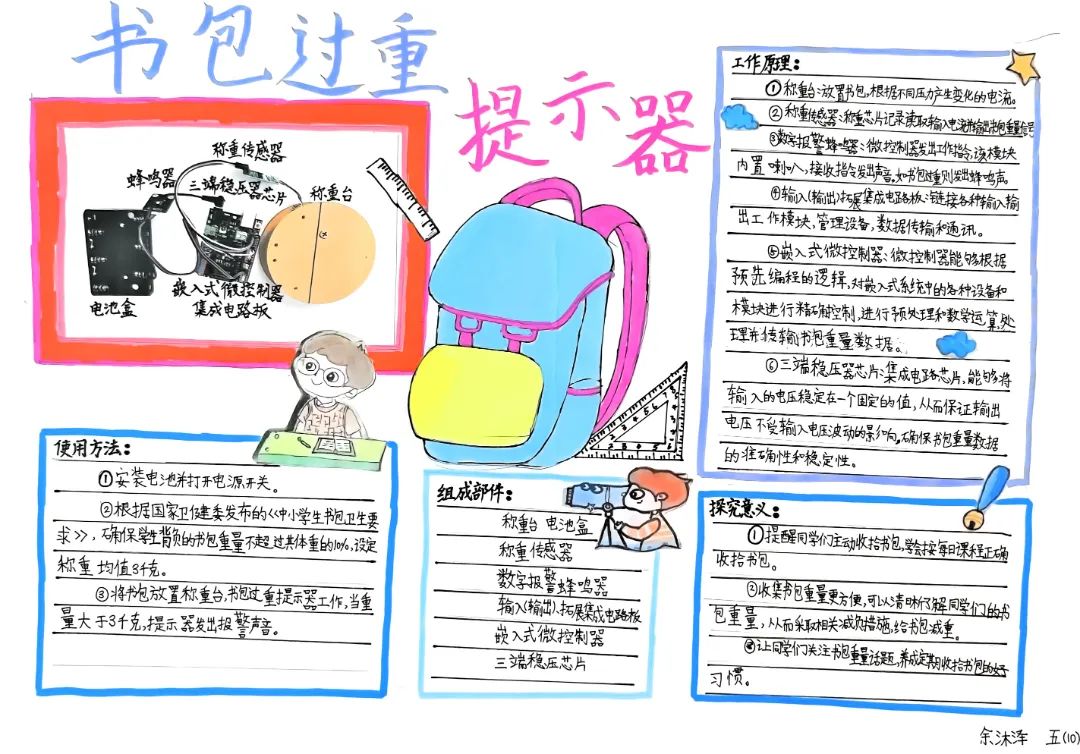 书包过重
提示器
称重传感器
蜂鸣器
三端稳压器芯片
称重台
嵌入式微控制器
集成电路板
电池盒
使用方法：
①安装电池并打开电源开关。
②根据国家卫健委发布的《中小学生书包卫生要
求》，确保学生背负的书包重量不超过其体重的10%，设定
称重均值3千克。
③将书包放置称重台，书包过重提示器工作，当重
量大于3千克，提示器发出报警声音。
组成部件：
称重台 电池盒
称重传感器
数字报警蜂鸣器
输入（输出）、拓展集成电路板
嵌入式微控制器
三端稳压芯片
工作原理：
①称重台：放置书包，根据不同压力产生变化的电流。
②称重传感器：称重芯片记录读取输入电流并输出书包重量信号
③数字报警蜂鸣器：微控制器发出工作指令，该模块
内置喇叭，接收指令发出声音。如书包过重则发出蜂鸣声。
④输入（输出）拓展集成电路板：链接各种输入输
出工作模块，管理设备，数据传输和通讯。
⑤嵌入式微控制器：微控制器能够根据
预先编程的逻辑，对嵌入式系统中的各种设备和
模块进行精确控制，进行预处理和数学运算，处
理并传输书包重量数据。
⑥三端稳压器芯片：集成电路芯片，能够将
输入的电压稳定在一个固定的值，从而保证输出
电压不受输入电压波动的影响。确保书包重量数据
的准确性和稳定性。
探究意义：
①提醒同学们主动收拾书包，学会按每日课程正确
收拾书包。
②收集书包重量更方便，可以清晰了解同学们的书
包重量，从而采取相关减负措施，给书包减重。
③让同学们关注书包重量话题，养成定期收拾书包的好
习惯。
余沐泽 五(10)